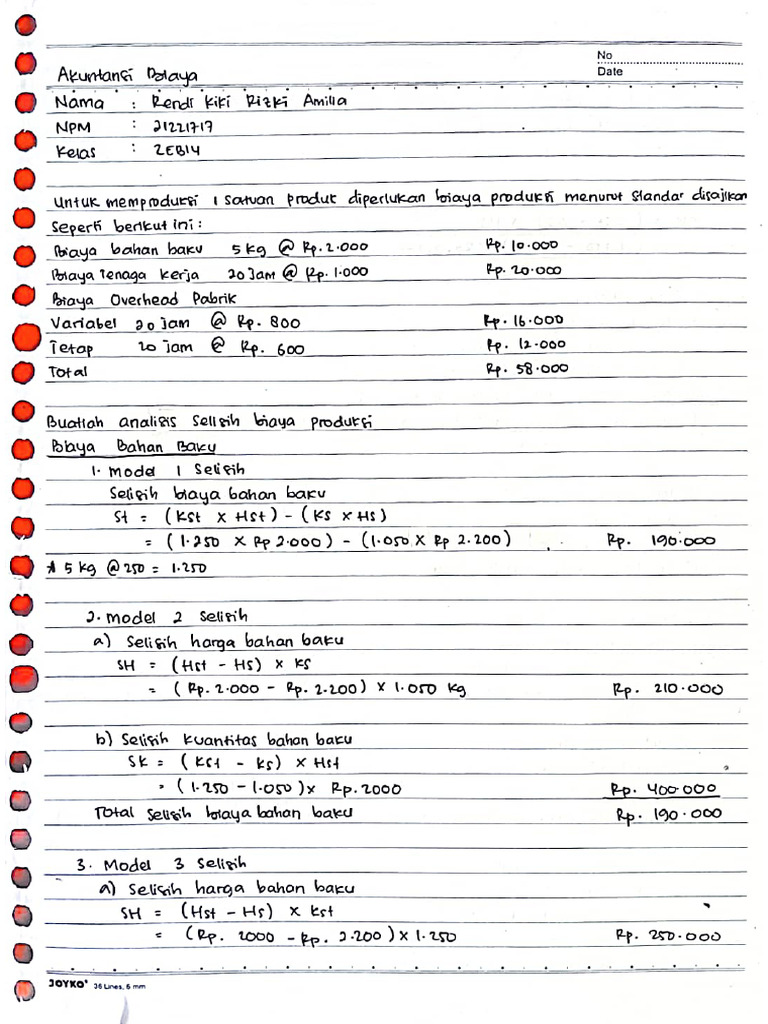 No
Akuntansi Biaya
Date
Nama : Rendi Kiki Rizki Amilia
NPM : 21221717
Kelas : 2EB14
Untuk memproduksi 1 satuan produk diperlukan biaya produksi menurut Standar disajikan
seperti berikut ini :
Biaya bahan baku 5 kg @ Rp. 2.000 Rp. 10.000
Biaya Tenaga Kerja 20 Jam @ Rp. 1.000 Rp. 20.000
Biaya Overhead Pabrik
Variabel 20 jam @ Rp. 800 Rp. 16.000
Tetap 20 jam @ Rp. 600 Rp. 12.000
Total Rp. 58.000
Buatlah analisis selisih biaya produksi
Biaya Bahan Baku
1. Model 1 Selisih
Selisih biaya bahan baku
St = (Kst x Hst) - (Ks x Hs)
= (1.250 x Rp 2.000) - (1.050 x Rp 2.200) Rp. 190.000
* 5 kg @ 250 = 1.250
2. Model 2 Selisih
a) Selisih harga bahan baku
SH = (Hst - Hs) x Ks
= (Rp. 2.000 - Rp. 2.200) x 1.050 kg Rp. 210.000
b) Selisih kuantitas bahan baku
SK = (Kst - Ks) x Hst
= (1.250 - 1.050) x Rp. 2000 Rp. 400.000
Total Selisih biaya bahan baku Rp. 190.000
3. Model 3 Selisih
a) Selisih harga bahan baku
SH = (Hst - Hs) x Kst
= (Rp. 2000 - Rp. 2.200) x 1.250 Rp. 250.000
JOYKO® 36 Lines, 6 mm